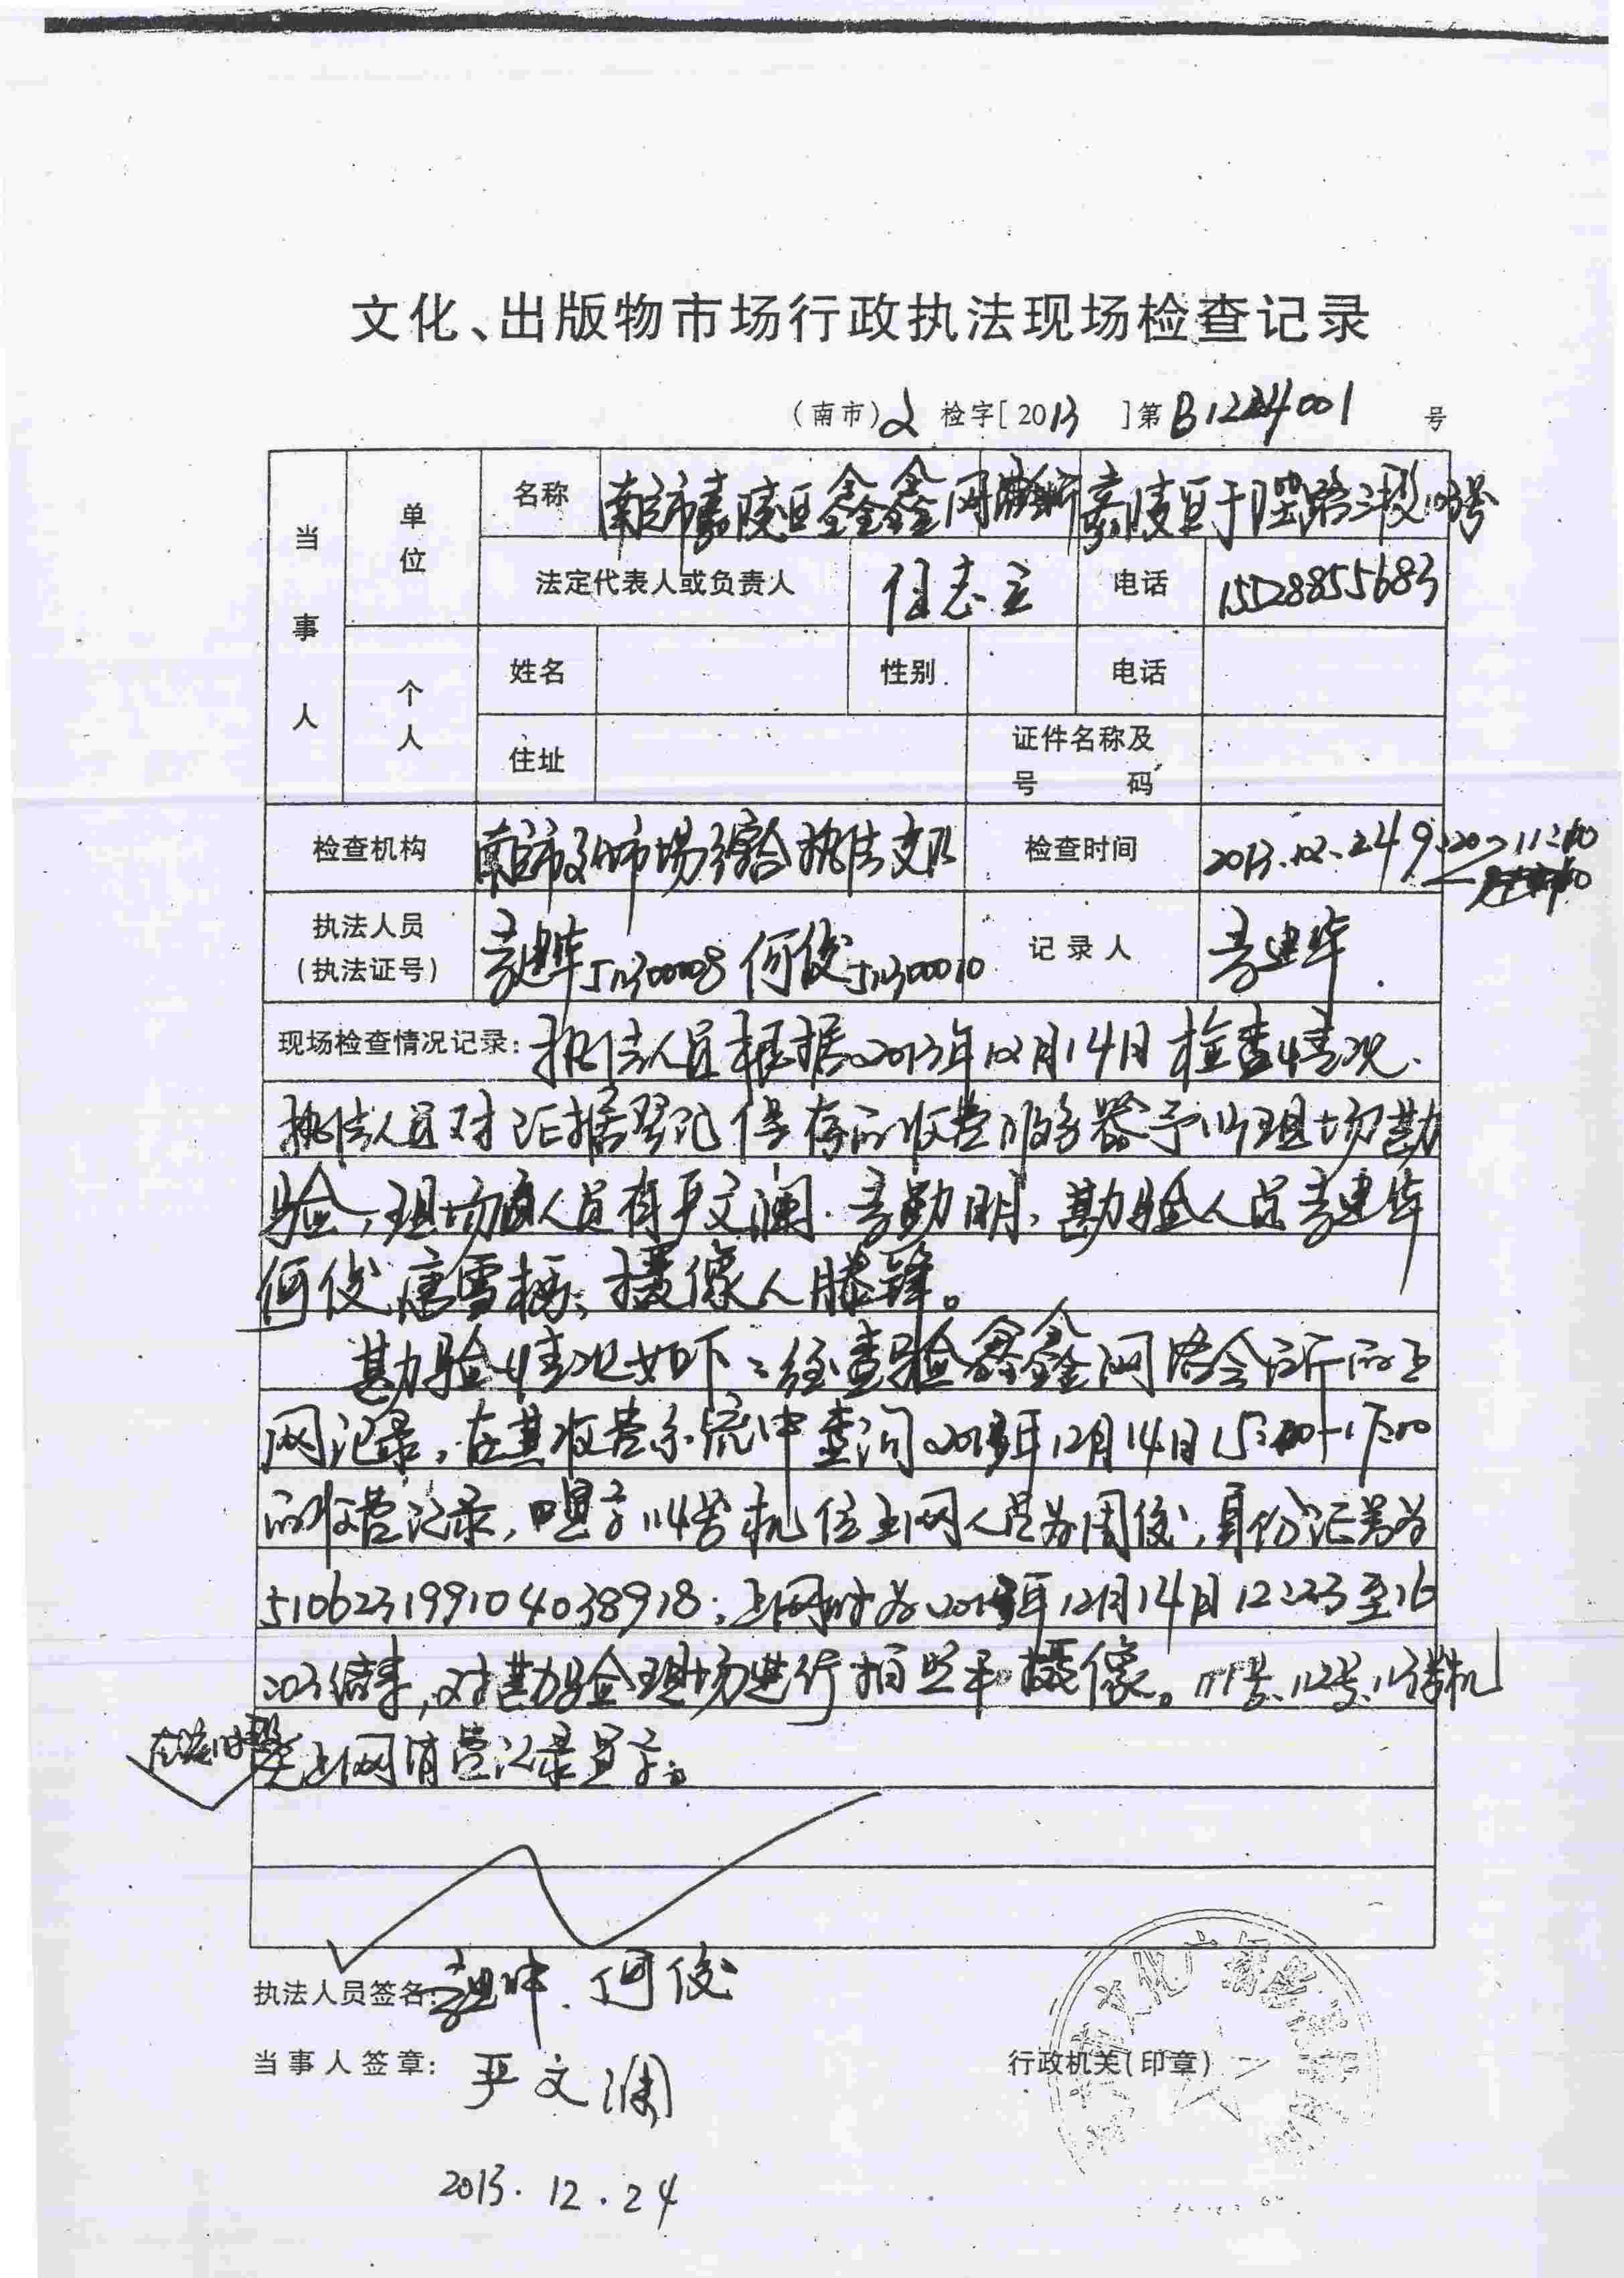 文化、出版物市场行政执法现场检查记录
(南市)文 检字[2013 ]第B1224001 号
当事人 单位 名称 南充市嘉陵区鑫鑫网络会所 嘉陵区 路三段103号
法定代表人或负责人 任志立 电话 15528855683
个人 姓名 性别 电话
住址 证件名称及号码
检查机构 南充市文化市场综合执法支队 检查时间 2013.12.24 9:20-11:00
执法人员(执法证号) 建华51300008 何俊51300010 记录人 建华
现场检查情况记录: 执法人员根据2013年12月14日检查情况.
执法人员对证据登记保存的收费服务器予以现场勘
验,现场人员有严文澜. 勤明,勘验人员 建华
何俊 唐雪 ,摄像人滕锋。
勘验情况如下:经查验鑫鑫网络会所的上
网记录,在其收费系统中查询2013年12月14日15:00-17:00
的收费记录,显示114号机位上网人员为周俊,身份证号为
510623199104038918,上网时为2013年12月14日12:23至16
:03结束,对勘验现场进行拍照和摄像。111号、112号、113号机
在该时段无上网消费记录显示。
执法人员签名: 建华. 何俊
当事人签章: 严文澜
行政机关(印章)
2013.12.24